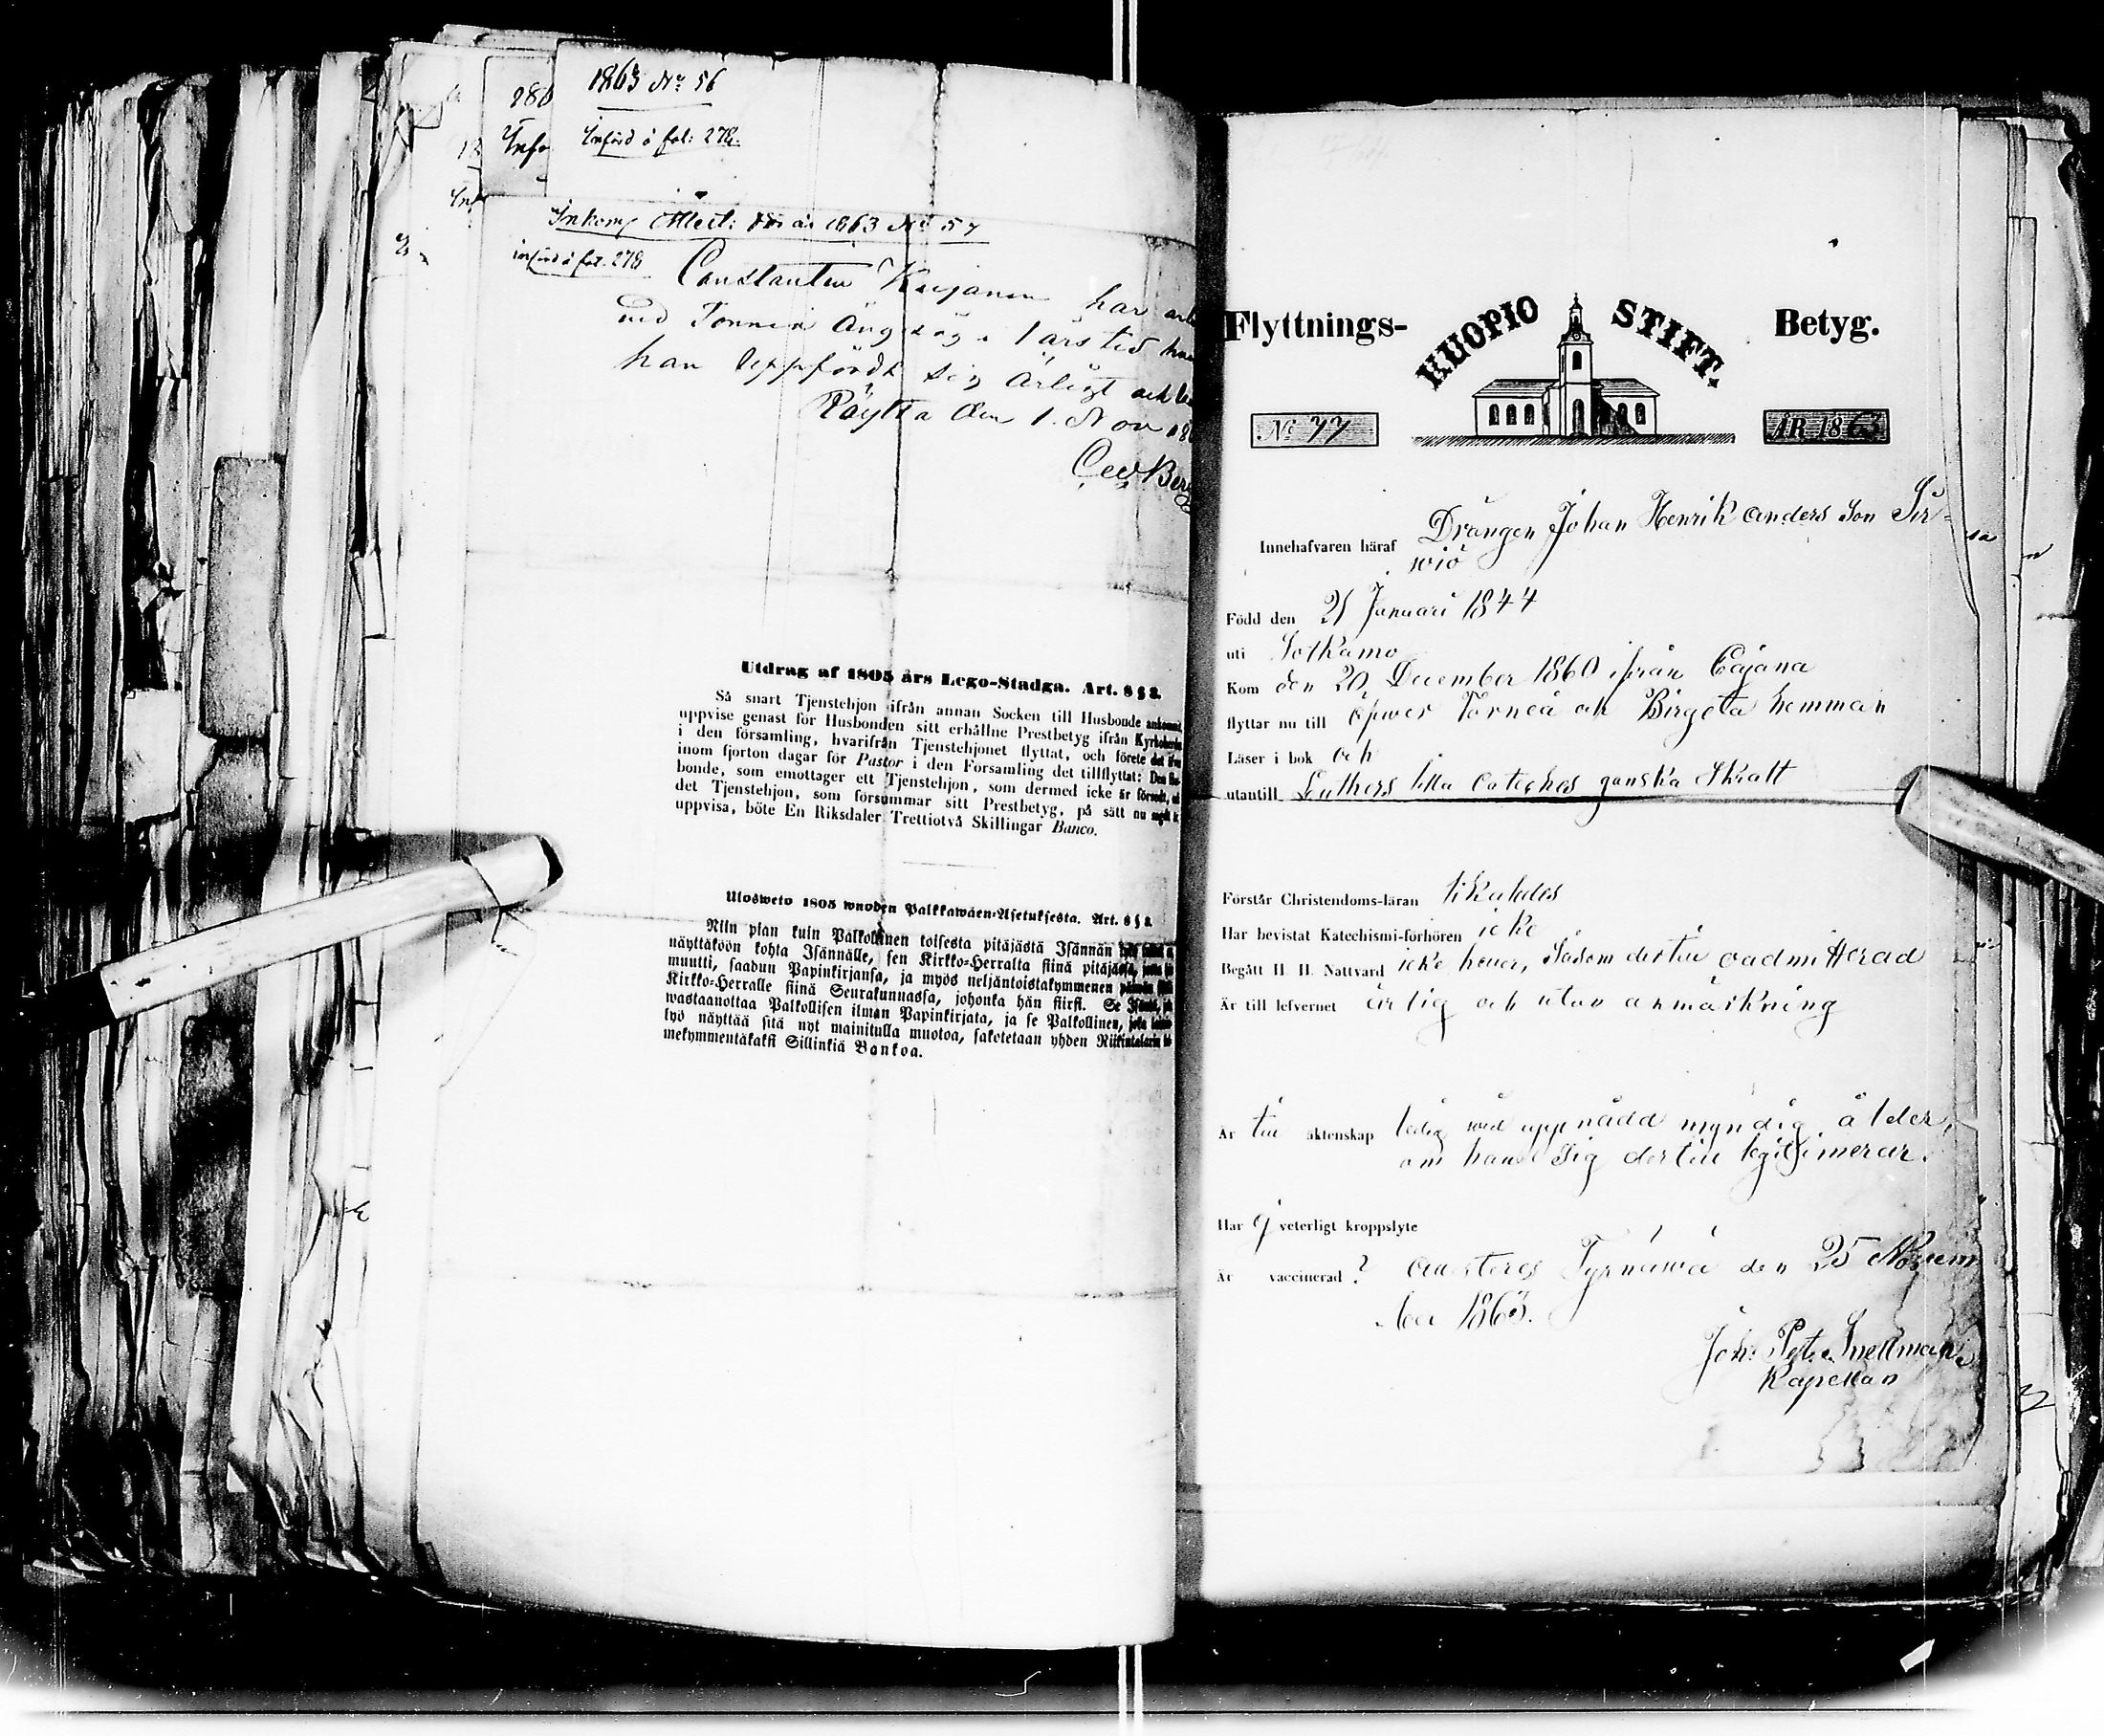 1863 No 56
Införd å fol: 278.
Inkom. Attest: för år 1863 No 57
införd å fol. 278
Constantin Kujanen har
ved Torneå Ångsåg i 1 års tid
han uppfördt sig ärligt och
Röyttä den 1. Nov
Utdrag af 1805 års Lego-Stadga. Art. 8 § 2.
Så snart Tjenstehjon ifrån annan Socken till Husbonde ankommit
uppvise genast för Husbonden sitt erhållne Prestbetyg ifrån Kyrkoherden
i den församling, hvarifrån Tjenstehjonet flyttat, och förete det
inom fjorton dagar för Pastor i den Församling det tillflyttat: Den
bonde, som emottager ett Tjenstehjon, som dermed icke är försedt,
det Tjenstehjon, som försummar sitt Prestbetyg, på sätt nu sagdt
uppvisa, böte En Riksdaler Trettiotvå Skillingar Banco.
Ulosweto 1805 wuoden Palkkawäen-Asetuksesta. Art. 8 §
Niin pian kuin Palkollinen toisesta pitäjästä Isännän
näyttäköön kohta Isännälle, sen Kirkko-Herralta siinä pitäjässä,
muutti, saadun Papinkirjansa, ja myös neljäntoistakymmenen
Kirkko-Herralle siinä Seurakunnassa, johonka hän siirsi. Se
wastaanottaa Palkollisen ilman Papinkirjata, ja se Palkollinen,
lyö näyttää sitä nyt mainitulla muotoa, saketetaan yhden Riikintalarin
mekymmentäkaksi Sillinkiä Bankoa.
Flyttnings- KUOPIO STIFT. Betyg.
No 77 ÅR 1863
Innehafvaren häraf Drängen Johan Henrik Anders Son Sir-
wiö
Född den 21 Januari 1844
uti Sotkamo
Kom den 20 December 1860 ifrån Cajana
flyttar nu till Öfwer Torneå och Birgeta hemman
Läser i bok och
utantill Luthers lilla Cateches ganska Skralt
Förstår Christendoms-läran likaledes
Har bevistat Katechismi-förhören icke
Begått H. H. Nattvard icke heller, Såsom dertill oadmitterad
Är till lefvernet ärlig och utan anmärkning
Är till äktenskap ledig wid uppnådd myndig ålder,
om han Sig dertill legitimerar.
Har ej veterligt kroppslyte
Är vaccinerad ? Attesteras Tyrnäwä den 25 Novem
ber 1863.
Joh: Pet. Snellman
Kapellan